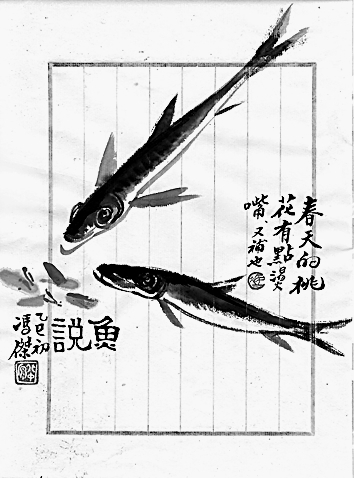 魚說
春天的桃
花有點燙
嘴 又補也
乙巳初
馮傑